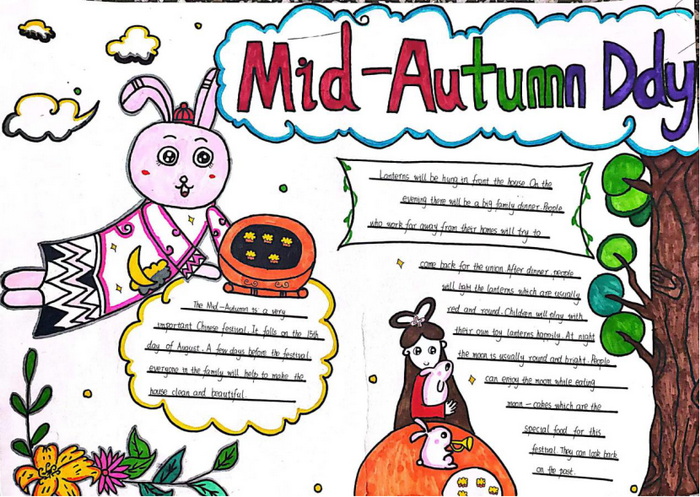 Mid-Autumn Ddy
Lanterns will be hung in front the house On the
evening there will be a big family dinner.People
who work far away from their homes will try to
come back for the union.After dinner, people
will light the lanterns which are usually
red and round.Children will play with
their own toy lanterns happily. At night
the moon is usually round and bright.People
can enjoy the moon while eating
moon-cakes which are the
special food for this
festival.They can look back
on the past.
The Mid-Autumn is a very
important Chinese festival.It falls on the 15th
day of August. A few days before the festival
everyone in the family will help to make the
house clean and beautiful.